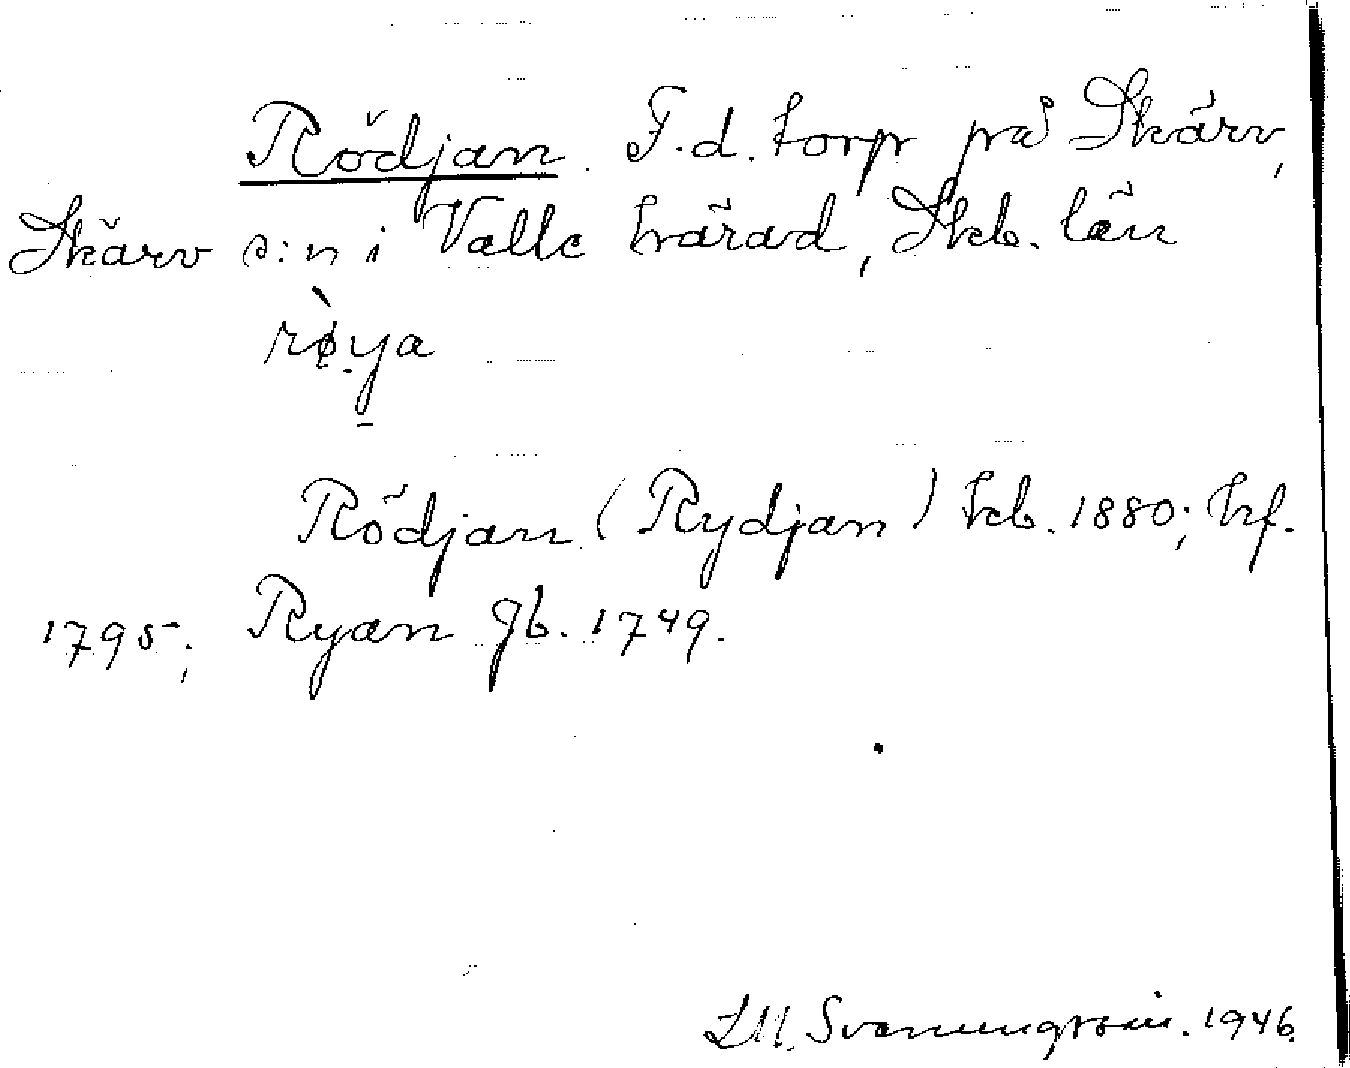 Rödjan. F.d. torp på Skärv,
Skärv s:n i Valle härad, Skb. län
rø̀ya
Rödjan (Rydjan) hb. 1880; hf.
1795; Ryan Jb. 1749.
Svenungsson. 1946.